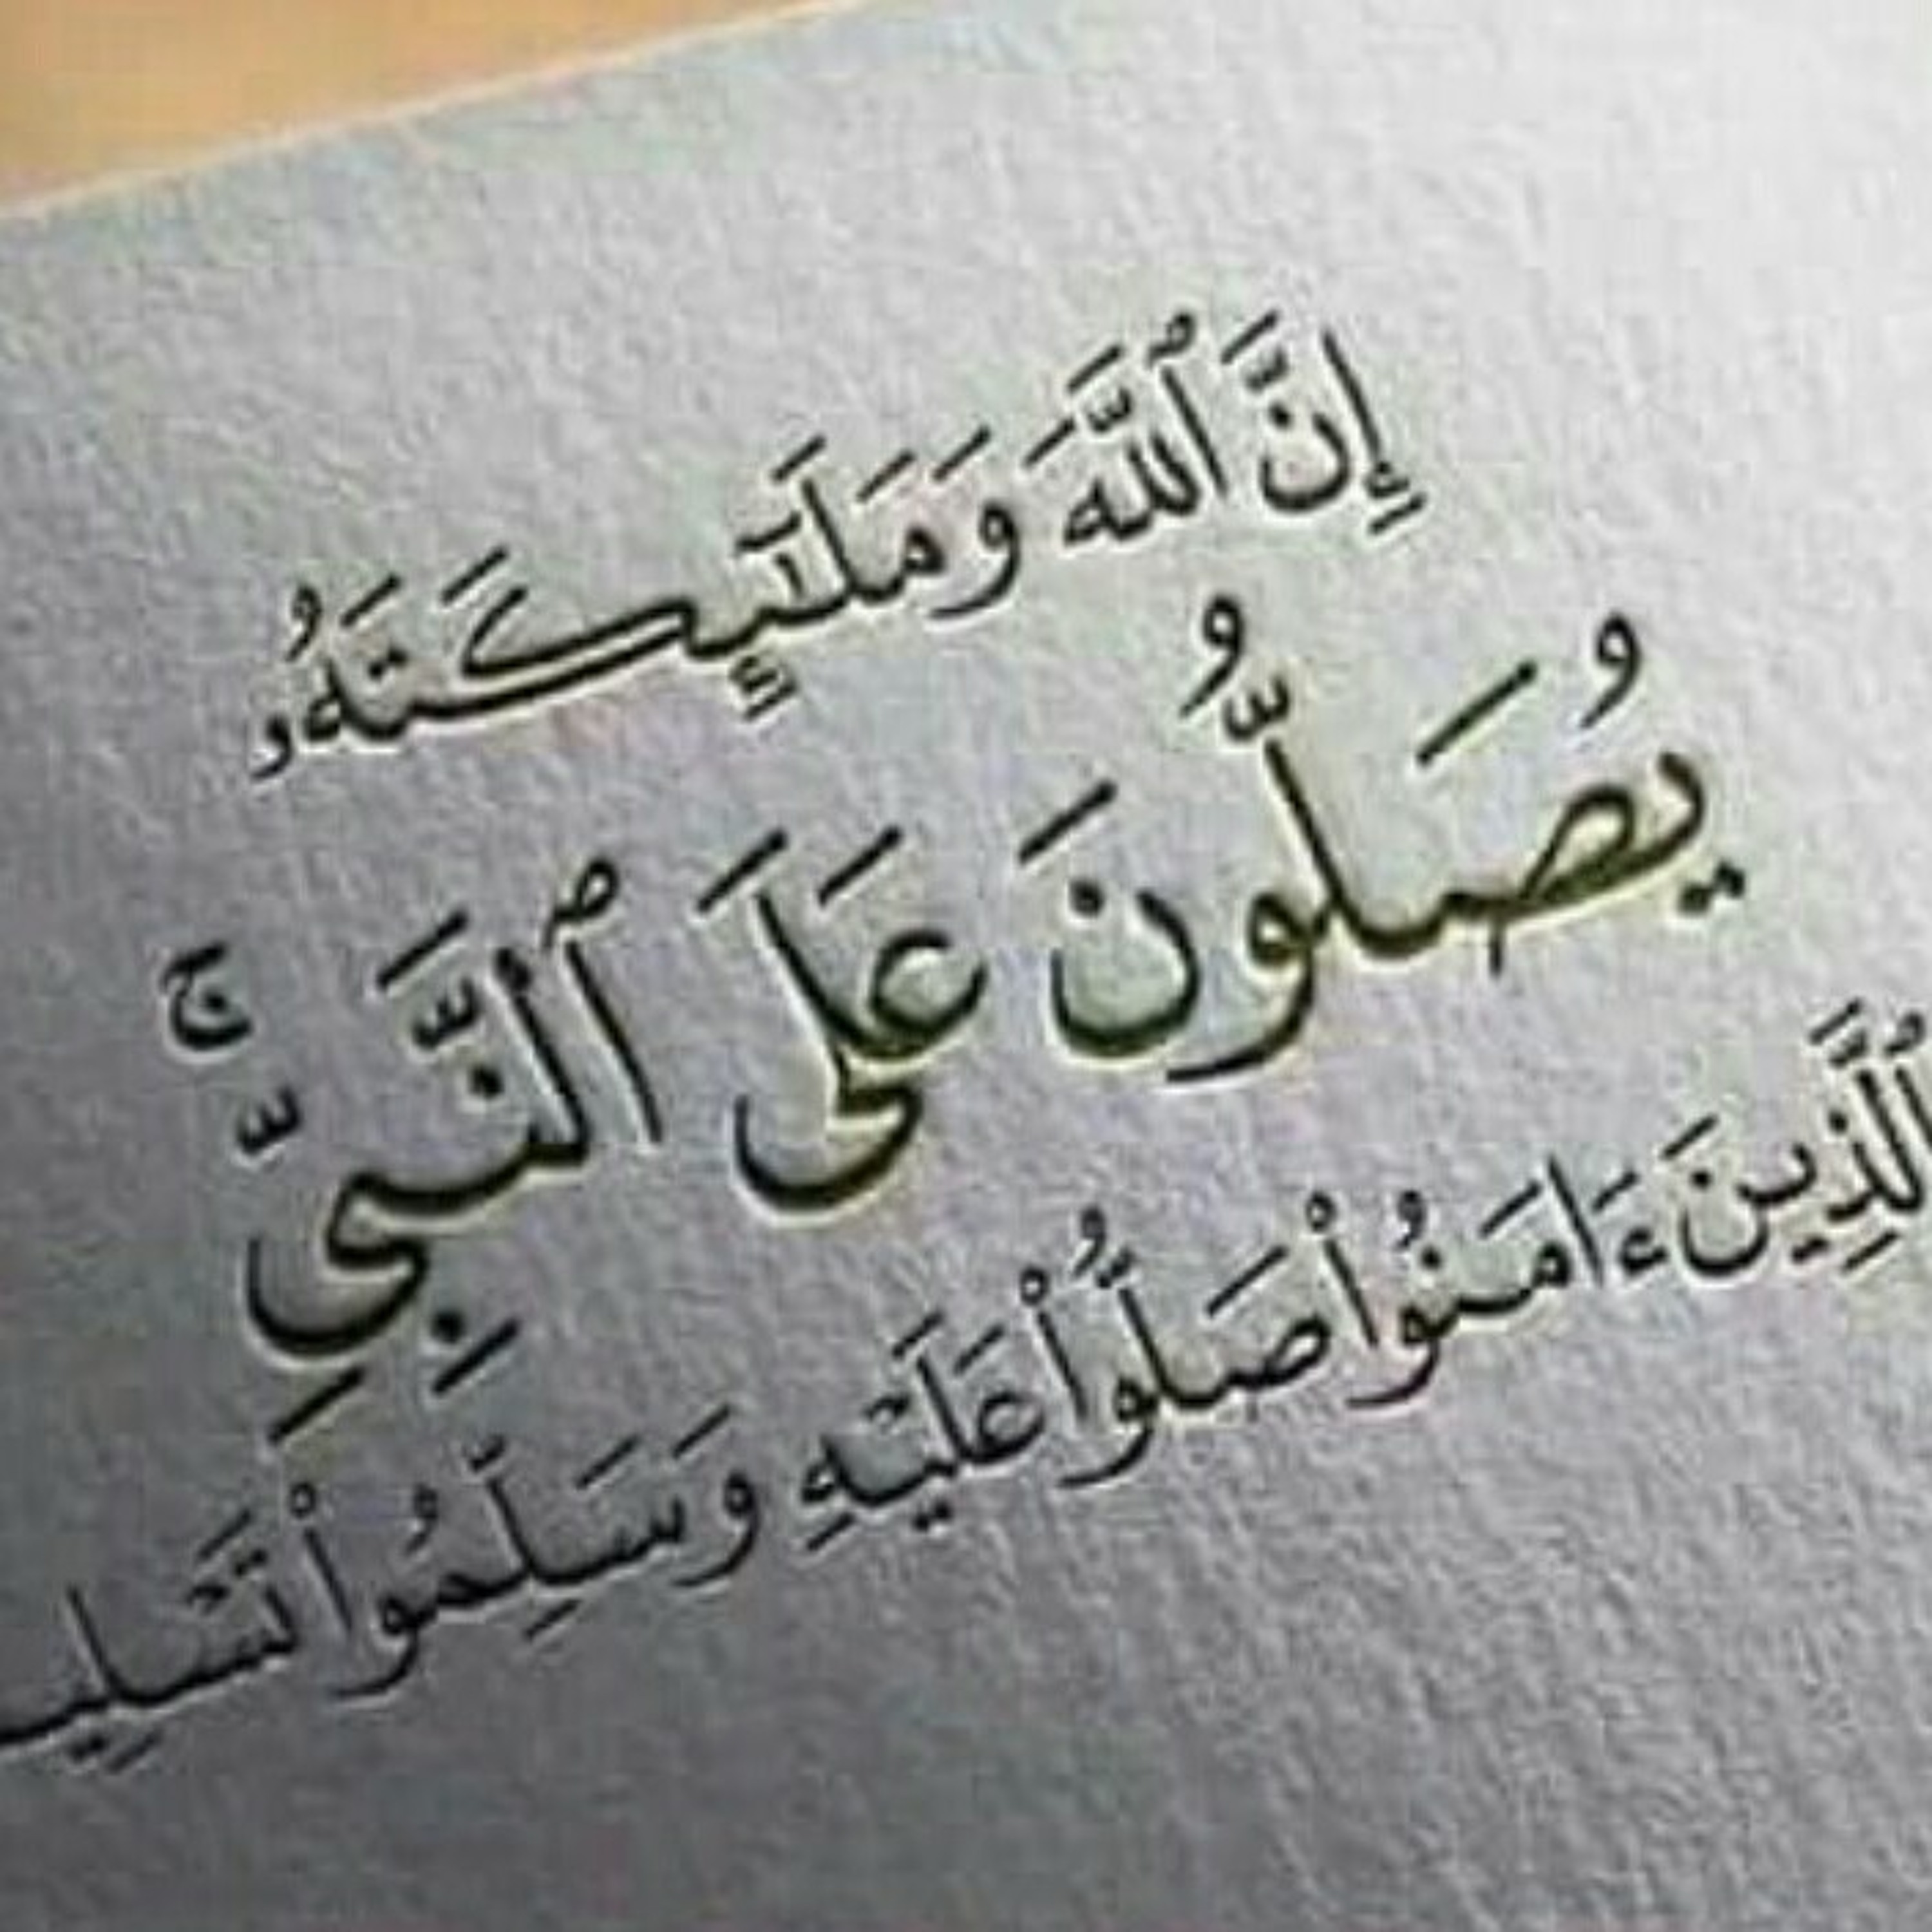 إِنَّ ٱللَّهَ وَمَلَٰٓئِكَتَهُۥ
يُصَلُّونَ عَلَى ٱلنَّبِيِّ ۚ
ٱلَّذِينَ ءَامَنُوا۟ صَلُّوا۟ عَلَيْهِ وَسَلِّمُوا۟ تَسْلِيـ